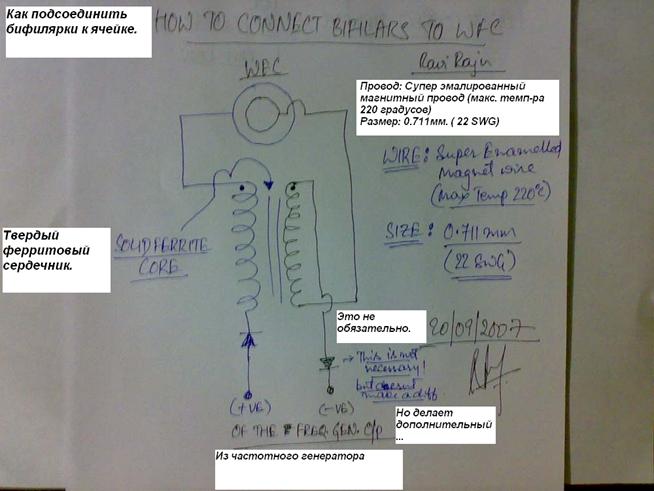 Как подсоединить
бифилярки к ячейке.
HOW TO CONNECT BIFILARS TO WFC
Ravi Raju
WFC
Провод: Супер эмалированный
магнитный провод (макс. темп-ра
220 градусов)
Размер: 0.711мм. ( 22 SWG)
WIRE: Super Enamelled
Magnet wire
(Max Temp 220°C)
Твердый
ферритовый
сердечник.
SOLID FERRITE
CORE
SIZE: 0.711 mm
(22 SWG)
Это не
обязательно.
20/09/2007
→ This is not
necessary!
but doesnt
make a diff
(+VE)
(-VE)
Но делает
дополнительный
...
OF THE FREQ. GEN. O/P
Из частотного генератора